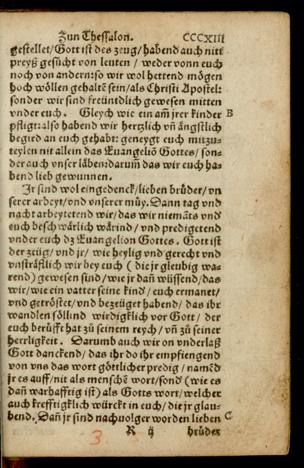 Zun Thessalon. CCCXIII
gestellet/Gott ist des zeug/habend auch nitt
preyß gesůcht von leuten / weder vonn euch
noch von andern: so wir wol hettend mögen
hoch wöllen gehaltē sein/als Christi Apostel:
sonder wir sind freüntlich gewesen mitten
vnder euch. Gleych wie ein am̄ jrer kinder B
pfligt: also habend wir hertzlich vn̄ ängstlich
begird an euch gehabt: geneygt euch mitzů-
teylen nit allein das Euangeliō Gottes/ son-
der auch vnser läben: darum̄ das wir euch ha-
bend lieb gewunnen.
Jr sind wol eingedenck/lieben brůder/vn
serer arbeyt/vnd vnserer můy. Dann tag vnd
nacht arbeytetend wir/das wir niemāts vnd'
euch beschwärlich wärind/ vnd predigetend
vnder euch dz Euangelion Gottes. Gott ist
der zeüg/vnd jr/ wie heylig vnd gerecht vnd
vnsträfflich wir bey euch ( die jr gleubig wa-
rend) gewesen sind/wie jr dañ wüssend/das
wir/wie ein vatter seine kind/ euch ermanet/
vnd getröstet/vnd bezeüget habend/ das ihr
wandlen söllind wirdigklich vor Gott / der
euch berůfft hat zů seinem reych/ vn̄ zů seiner
herrligkeit. Darumb auch wir on vnderlaß
Gott danckend/ das ihr do ihr empfiengend
von vns das wort göttlicher predig / namēd
jr es auff/nit als menschē wort/sond' (wie es
dañ warhafftig ist) als Gotts wort/welcher
auch krefftigklich würckt in euch/die jr glau-
bend. Dañ jr sind nachuolger worden lieben C
R ij brüder
3